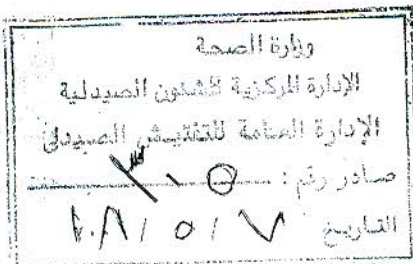 وزارة الصحة
الإدارة المركزية للشئون الصيدلية
الإدارة العامة للتفتيش الصيدلى
صادر رقم :
التاريخ ٧ / ٥ /